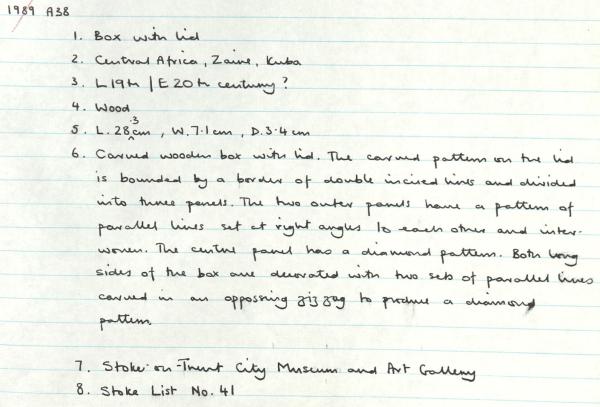 1989 A38
1. Box with lid
2. Central Africa, Zaire, Kuba
3. L 19th / E 20th century?
4. Wood
5. L. 28.3cm, W. 7.1cm, D. 3.4cm
6. Carved wooden box with lid. The carved pattern on the lid
is bounded by a border of double incised lines and divided
into three panels. The two outer panels have a pattern of
parallel lines set at right angles to each other and inter-
woven. The centre panel has a diamond pattern. Both long
sides of the box are decorated with two sets of parallel lines
carved in an oppossing zig zag to produce a diamond
pattern.
7. Stoke-on-Trent City Museum and Art Gallery
8. Stoke List No. 41